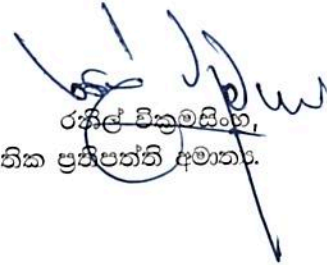 රනිල් වික්‍රමසිංහ,
තික ප්‍රතිපත්ති අමාත්‍ය.